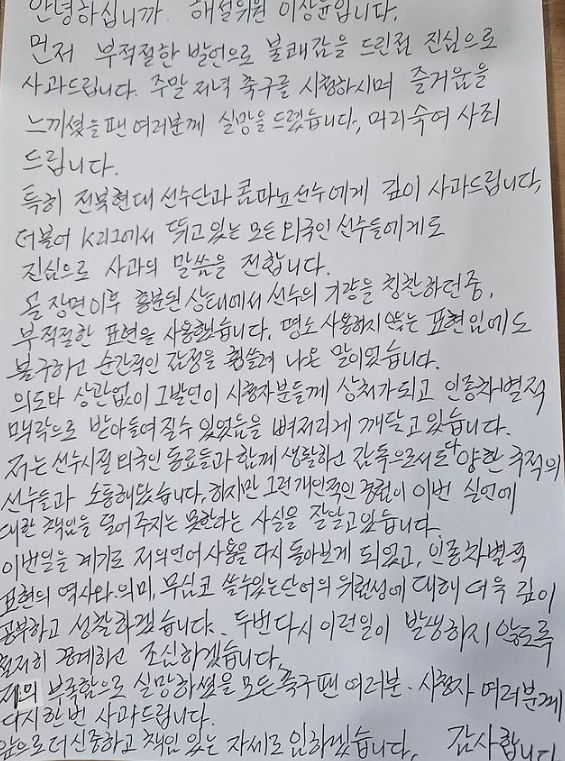 안녕하십니까. 해설위원 이상윤입니다.
먼저 부적절한 발언으로 불쾌감을 드린점 진심으로
사과드립니다. 주말 저녁 축구를 시청하시며 즐거움을
느끼셨을 팬 여러분께 실망을 드렸습니다, 머리숙여 사죄
드립니다.
특히 전북현대 선수단과 콤파뇨선수에게 깊이 사과드립니다,
더불어 K리그에서 뛰고 있는 모든 외국인 선수들에게도
진심으로 사과의 말씀을 전합니다.
골 장면이후 흥분된 상태에서 선수의 기량을 칭찬하던중,
부적절한 표현을 사용했습니다. 평소 사용하지 않는 표현임에도
불구하고 순간적인 감정을 휩쓸려 나온 말이었습니다.
의도와 상관없이 그발언이 시청자분들께 상처가되고 인종차별적
맥락으로 받아들여질수 있었음을 뼈저리게 깨닫고 있습니다.
저는 선수시절 외국인 동료들과 함께 생활하고 감독으로서도 다양한 국적의
선수들과 소통해왔습니다, 하지만 그런 개인적인 경험이 이번 실언에
대한 책임을 덜어 주지는 못한다는 사실을 잘알고있습니다.
이번일을 계기로 저의언어 사용을 다시 돌아보게 되었고, 인종차별적
표현의 역사와 의미, 무심코 쓸수있는 단어의 위험성에 대해 더욱 깊이
공부하고 성찰하겠습니다. 두번다시 이런일이 발생하지 않도록
철저히 경계하고 조심하겠습니다.
저의 부족함으로 실망하셨을 모든축구팬 여러분. 시청자 여러분께
다시한번 사과드립니다.
앞으로 더 신중하고 책임 있는 자세로 임하겠습니다. 감사합니다